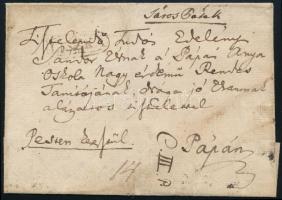 Sáros Paták
Tisztelendő Tudós Edelényi
Sándor Úrnak a Pápai Anya
Oskola Nagy érdemű Rendes
Tanítójának, Draga jó Uramnak
alázatos tisztelettel
Pesten keresztül. Pápán
14